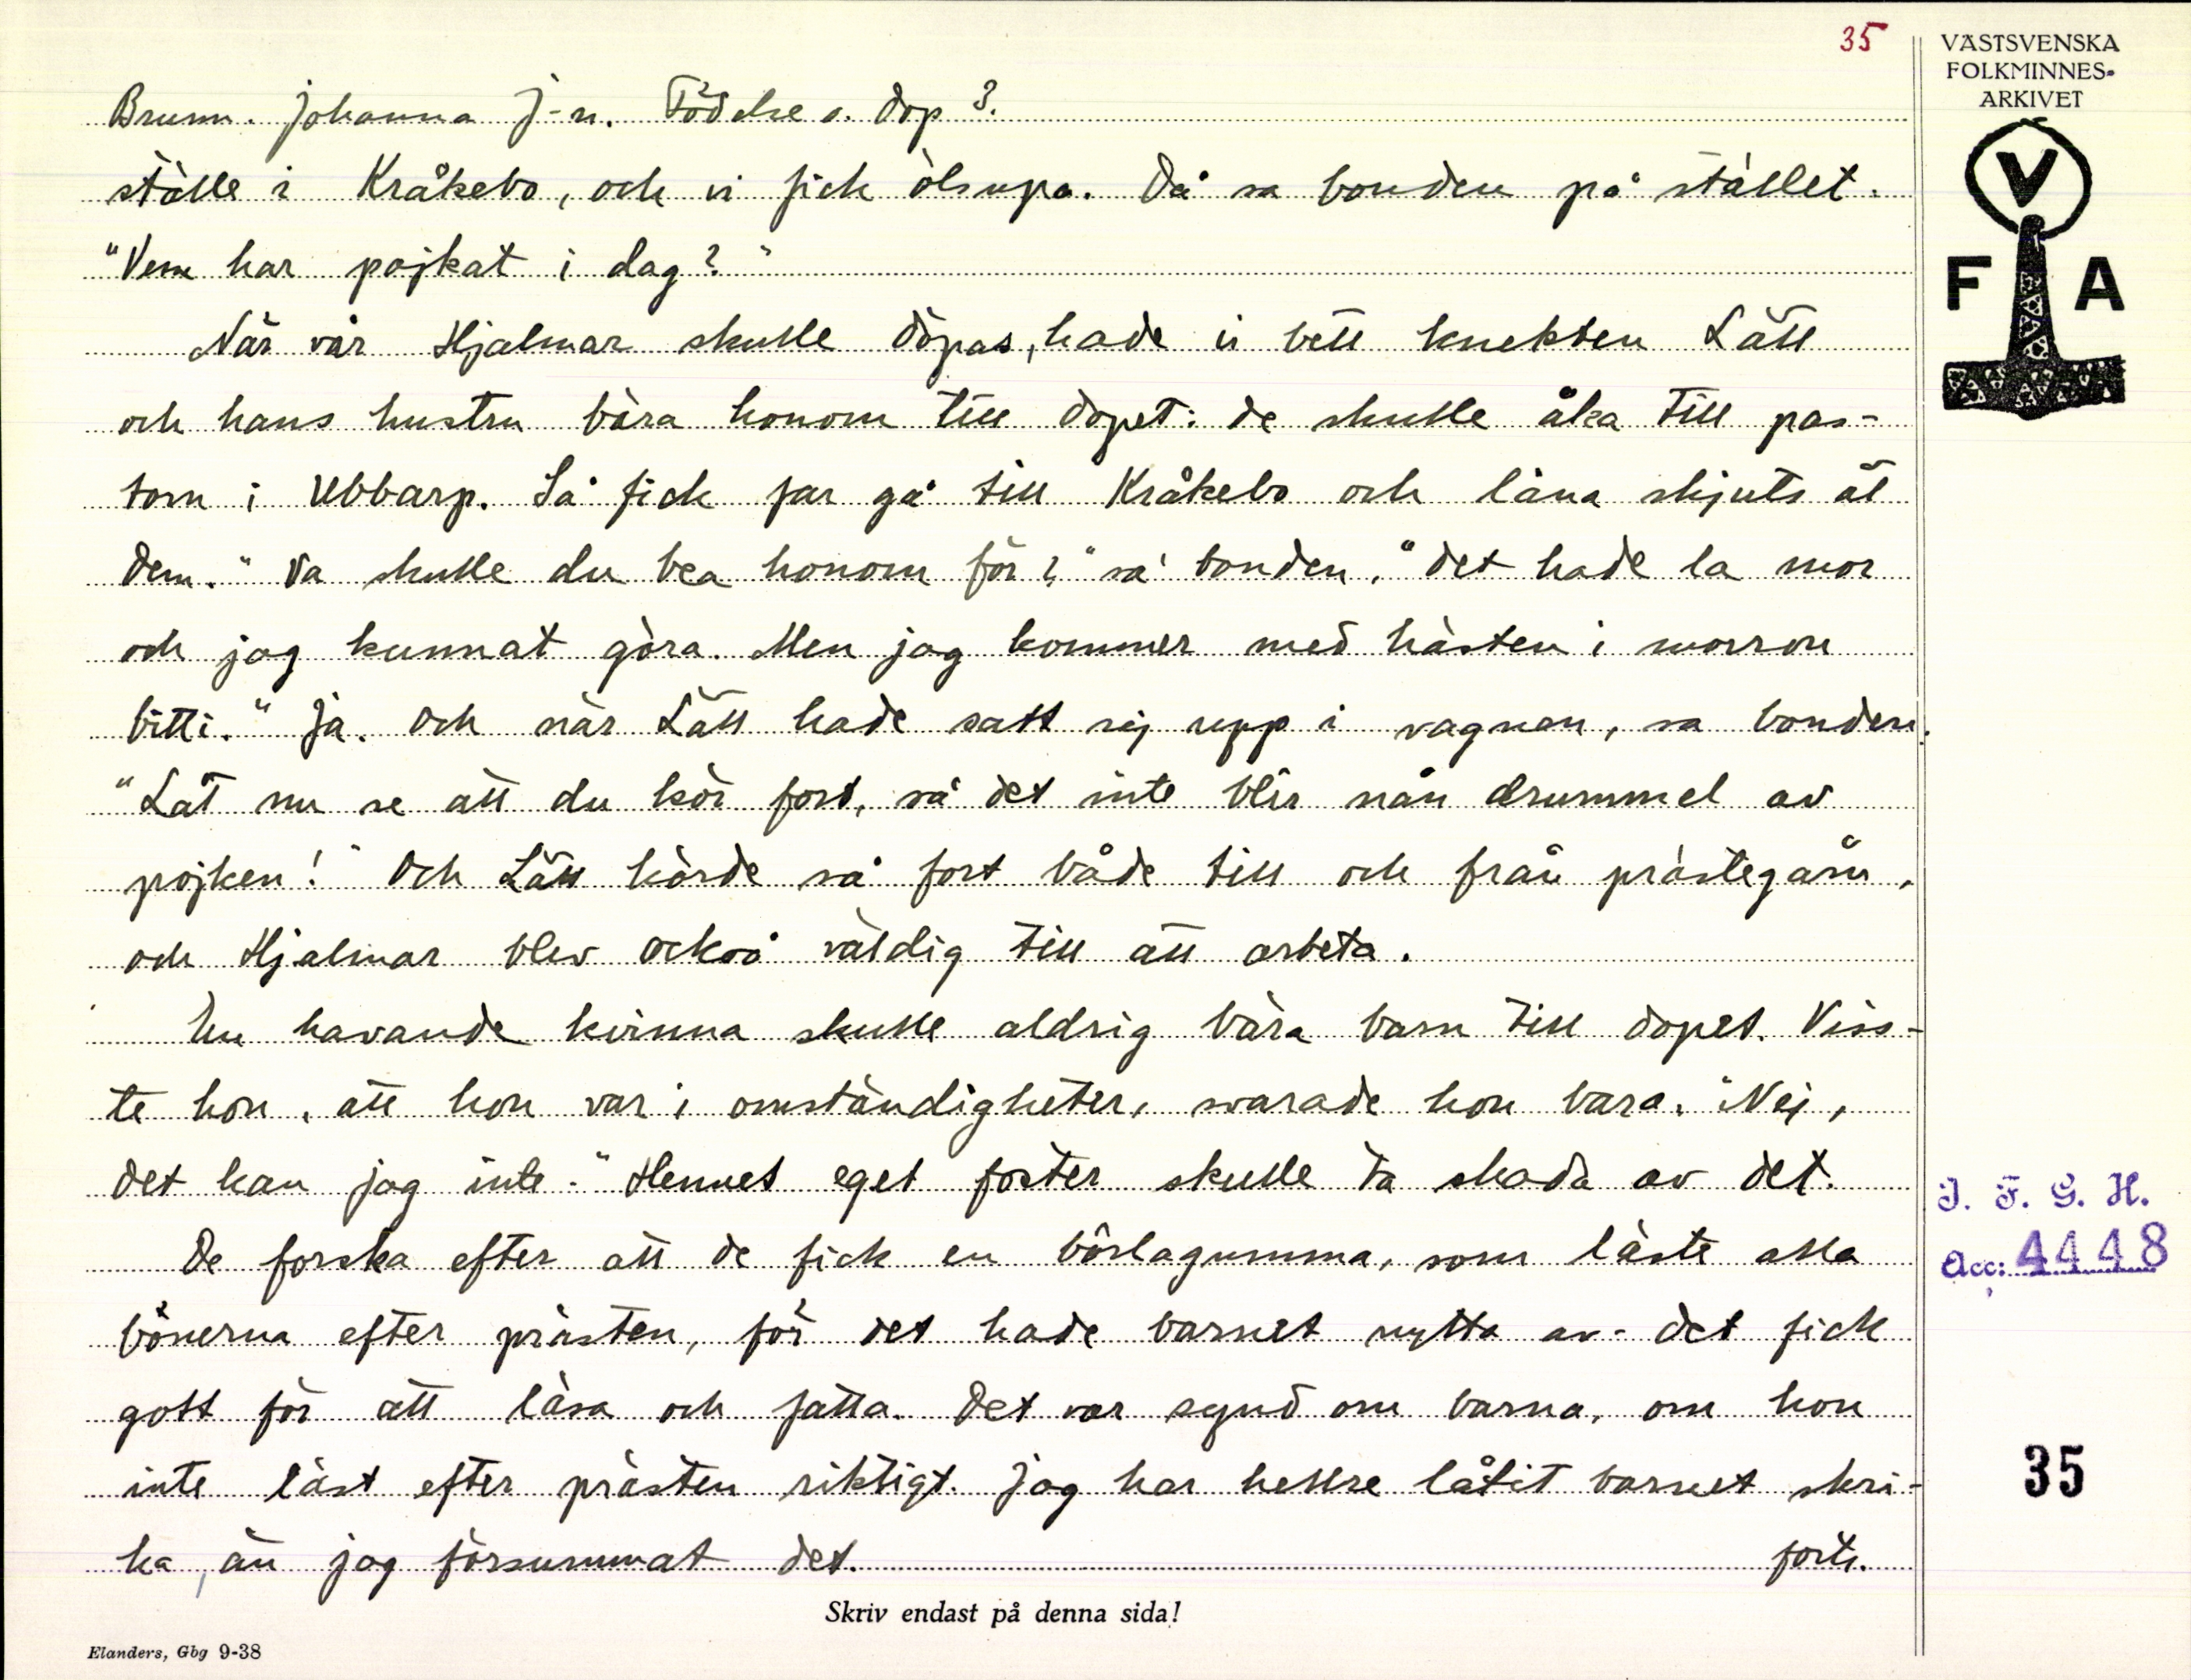 35
VÄSTSVENSKA
FOLKMINNES-
ARKIVET
V
F A
Brunn. Johanna J-n. Födelse o. dop 3.
ställe i Kråkebo, och vi fick ölsupa. Då sa bonden på stället:
"Vem har pojkat i dag?"
När vår Hjalmar skulle döpas, hade vi bett knekten Lätt
och hans hustru bära honom till dopet: de skulle åka till pas-
torn i Ubbarp. Så fick far gå till Kråkebo och låna skjuts åt
dem. "Va skulle du bea honom för?" sa' bonden. "det hade la mor
och jag kunnat göra. Men jag kommer med hästen i morron
bitti." Ja. Och när Lätt hade satt sej upp i vagnen, sa bonden:
"Låt nu se att du kör fort, så det inte blir nån drummel av
pojken!" Och Lätt körde så fort både till och från prästegårn,
och Hjalmar blev också väldig till att arbeta.
En havande kvinna skulle aldrig bära barn till dopet. Viss-
te hon, att hon var i omständigheter, svarade hon bara: "Nej,
det kan jag inte." Hennes eget foster skulle ta skada av det.
De forska efter att de fick en börlagumma, som läste alla
bönerna efter prästen, för det hade barnet nytta av - det fick
gott för att läsa och fatta. Det var synd om barna, om hon
inte läst efter prästen riktigt. Jag har hellre låtit barnet skri-
ka, än jag försummat det. forts.
Skriv endast på denna sida!
Elanders, Gbg 9-38
I. F. G. H.
Acc: 4448
35